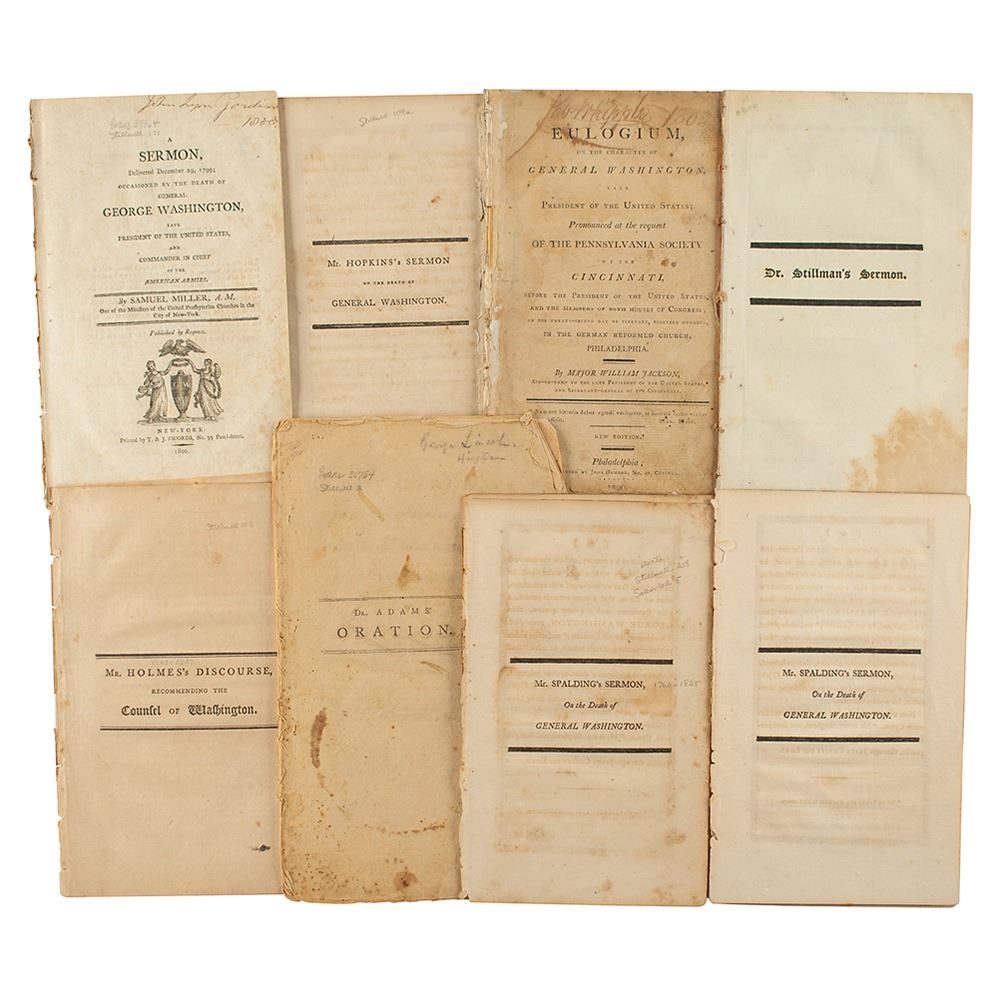 John Lyon Gordin
1800
Evans 37964
Stillwell 171
A
SERMON,
Delivered December 29, 1799;
OCCASIONED BY THE DEATH OF
GENERAL
GEORGE WASHINGTON,
LATE
PRESIDENT OF THE UNITED STATES,
AND
COMMANDER IN CHIEF
OF THE
AMERICAN ARMIES.
By SAMUEL MILLER, A. M.
One of the Ministers of the United Presbyterian Churches in the
City of New-York.
Published by Request.
NEW-YORK:
Printed by T. & J. SWORDS, No. 99 Pearl-street.
1800.
Stillwell 109a
Mr. HOPKINS's SERMON
ON THE DEATH OF
GENERAL WASHINGTON.
Whipple 1802
EULOGIUM,
ON THE CHARACTER OF
GENERAL WASHINGTON,
LATE
PRESIDENT OF THE UNITED STATES;
Pronounced at the request
OF THE PENNSYLVANIA SOCIETY
OF THE
CINCINNATI,
BEFORE THE PRESIDENT OF THE UNITED STATES,
AND THE MEMBERS OF BOTH HOUSES OF CONGRESS;
ON THE TWENTY-SECOND DAY OF FEBRUARY, EIGHTEEN HUNDRED,
IN THE GERMAN REFORMED CHURCH,
PHILADELPHIA.
By MAJOR WILLIAM JACKSON,
AID-DE-CAMP TO THE LATE PRESIDENT OF THE UNITED STATES,
AND SECRETARY-GENERAL OF THE CINCINNATI.
Nam nec historia debet egredi veritatem, et honeste factis veritas
NEW EDITION.
Philadelphia;
PRINTED BY JOHN ORMROD, No. 41, CHESNUT
1800.
Dr. Stillman's Sermon.
Mr. HOLMES's DISCOURSE,
RECOMMENDING THE
Counsel OF Washington.
George Lincoln
Hingham
Evans 36754
Stillwell 2
Dr. ADAMS'
ORATION.
Stillwell 215
Sabin 5
Mr. SPALDING's SERMON,
1765-1825
On the Death of
GENERAL WASHINGTON.
Mr. SPALDING's SERMON,
On the Death of
GENERAL WASHINGTON.